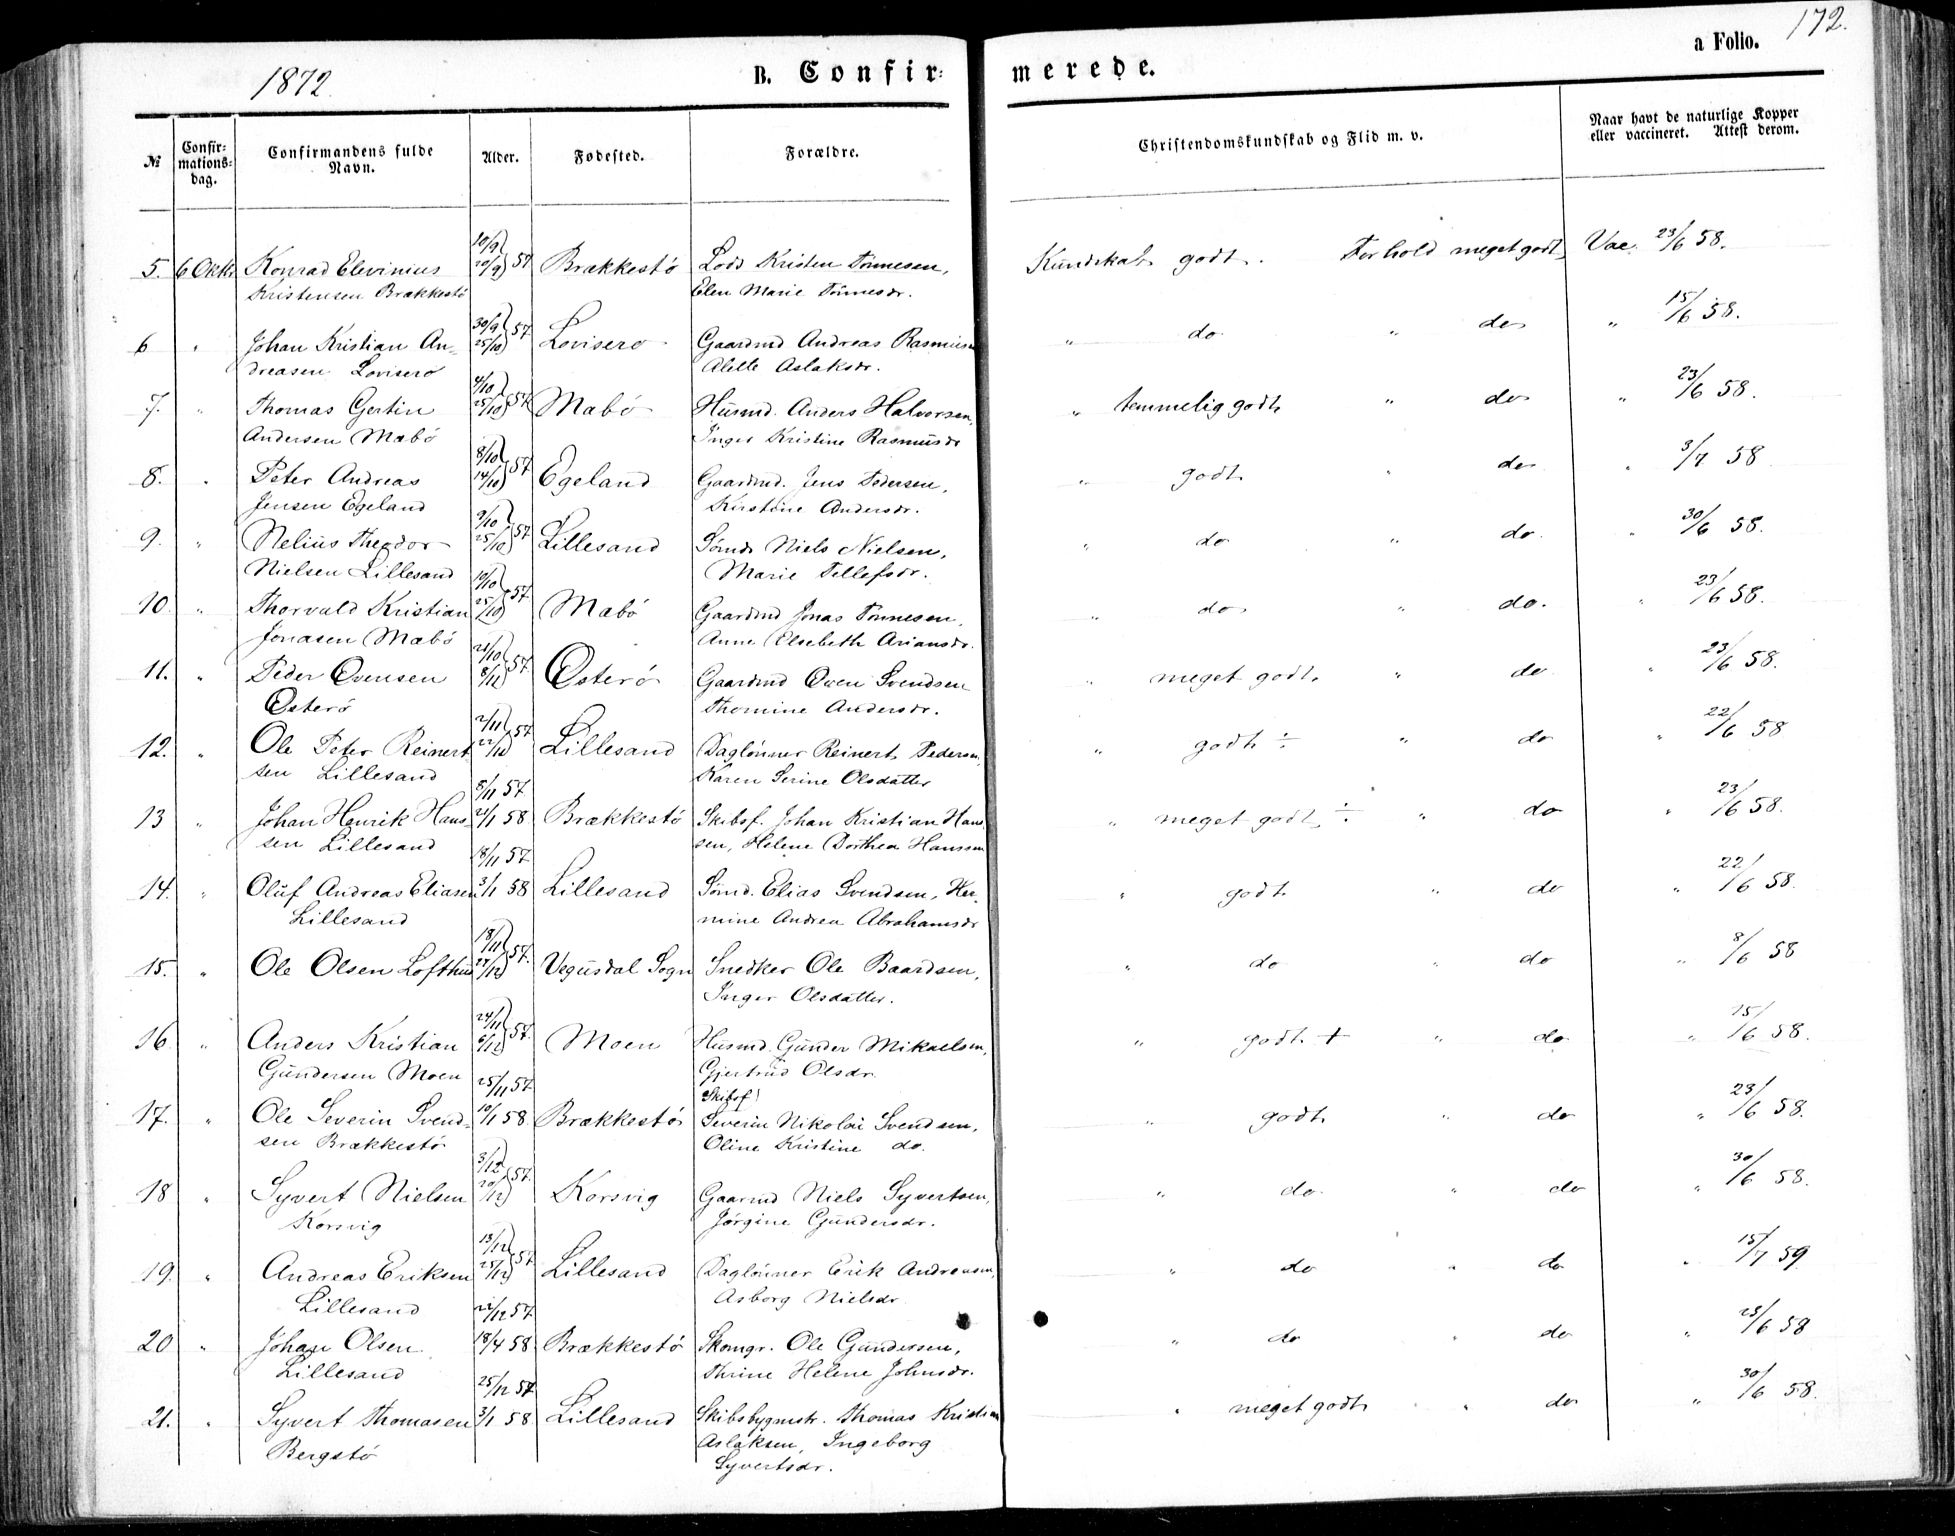 1872.
B. Confir-
merede.
a Folio.
172.
№
Confir-
mations-
dag.
Confirmandens fulde
Navn.
Alder.
Fødested.
Forældre.
Christendomskundskab og Flid m. v.
Naar havt de naturlige Kopper
eller vaccineret. Attest derom.
10/9
5. 6 Oktr. Konrad Elevinius 20/9 57 Brækkestø Lods Kristen Tønnesen, Kundskab godt. Forhold meget godt, Vac. 23/6 58.
Kristensen Brækkestø Elen Marie Tønnesdr.
30/9
6 " Johan Kristian An- 25/10 57 Loviserø Gaardmd Andreas Rasmusen " do " do " 15/6 58.
dreasen Loviserø Alette Aslaksdr.
4/10
7. " Thomas Gertin 25/10 57 Mæbø Husmd. Anders Halvorsen, " temmelig godt " do " 23/6 58.
Andersen Mæbø Inger Kristine Rasmusdr
8/10
8. " Peter Andreas 14/10 57 Egeland Gaardmd. Jens Pedersen, " godt " do " 3/7 58
Jensen Egeland Kirstine Andersdr.
9/10
9. " Nelius Theodor 25/10 57 Lillesand Sømd. Niels Nielsen, " do " do " 30/6 58.
Nielsen Lillesand Marie Tellefsdr.
10/10
10. " Thorvald Kristian 25/10 57 Mæbø Gaardmd Jonas Tønnesen, " do " do. " 23/6 58.
Jonasen Mæbø Anne Elsebeth Ariansdr.
21/10
11. " Peder Ovensen 8/11 57 Østerø Gaardmd Oven Svendsen " meget godt. " do " 23/6 58.
Østerø Thomine Andersdr.
2/11
12. " Ole Peter Reinert 22/11 57 Lillesand Dagl��nner Reinert Pedersen, " godt ÷ " do " 22/6 58
sen Lillesand Karen Serine Olsdatter
8/11 57
13 " Johan Henrik Hans- 24/1 58 Brækkestø Skibsf. Johan Kristian Han- " meget godt ÷ " do " 23/6 58.
sen Lillesand sen, Helene Dorthea Hanssen
18/11 57
14. " Oluf Andreas Eliasen 3/1 58 Lillesand Sømd. Elias Svendsen, Her- " godt " do " 22/6 58.
Lillesand mine Andrea Abrahamsdr
18/11
15. " Ole Olsen Lofthus 27/12 57. Vegusdal Sogn Snedker Ole Baardsen, " do " do " 8/6 58
Inger Olsdatter.
24/11
16 " Anders Kristian 6/12 57. Moen Husmd. Gunder Mikaelsen, " godt + " do " 15/6 58.
Gundersen Moen Gjertrud Olsdr.
25/11 57 Skibsf.
17. " Ole Severin Svend- 10/1 58 Brækkestø Severin Nikolai Svendsen, " godt " do " 23/6 58.
sen Brækkestø Oline Kristine do.
3/12
18 " Syvert Nielsen 20/12 57. Korsvig Gaarmd Niels Syvertsen, " do " do " 30/6 58.
Korsvig Jørgine Gundersdr.
13/12
19. " Andreas Eriksen 25/12 57 Lillesand Daglønner Erik Andreasen, " do " do " 15/7 59
Lillesand Asborg Nielsdr
22/12 57
20 " Johan Olsen 18/4 58 Brækkestø Skomgr. Ole Gundersen, " do " do " 25/6 58
Lillesand Thrine Helene Johnsdr.
25/12 57
21. " Syvert Thomasen 3/1 58 Lillesand Skibsbygmstr. Thomas Kristian " meget godt " do " 30/6 58.
Bergstø Aslaksen, Ingeborg
Syvertsdr.